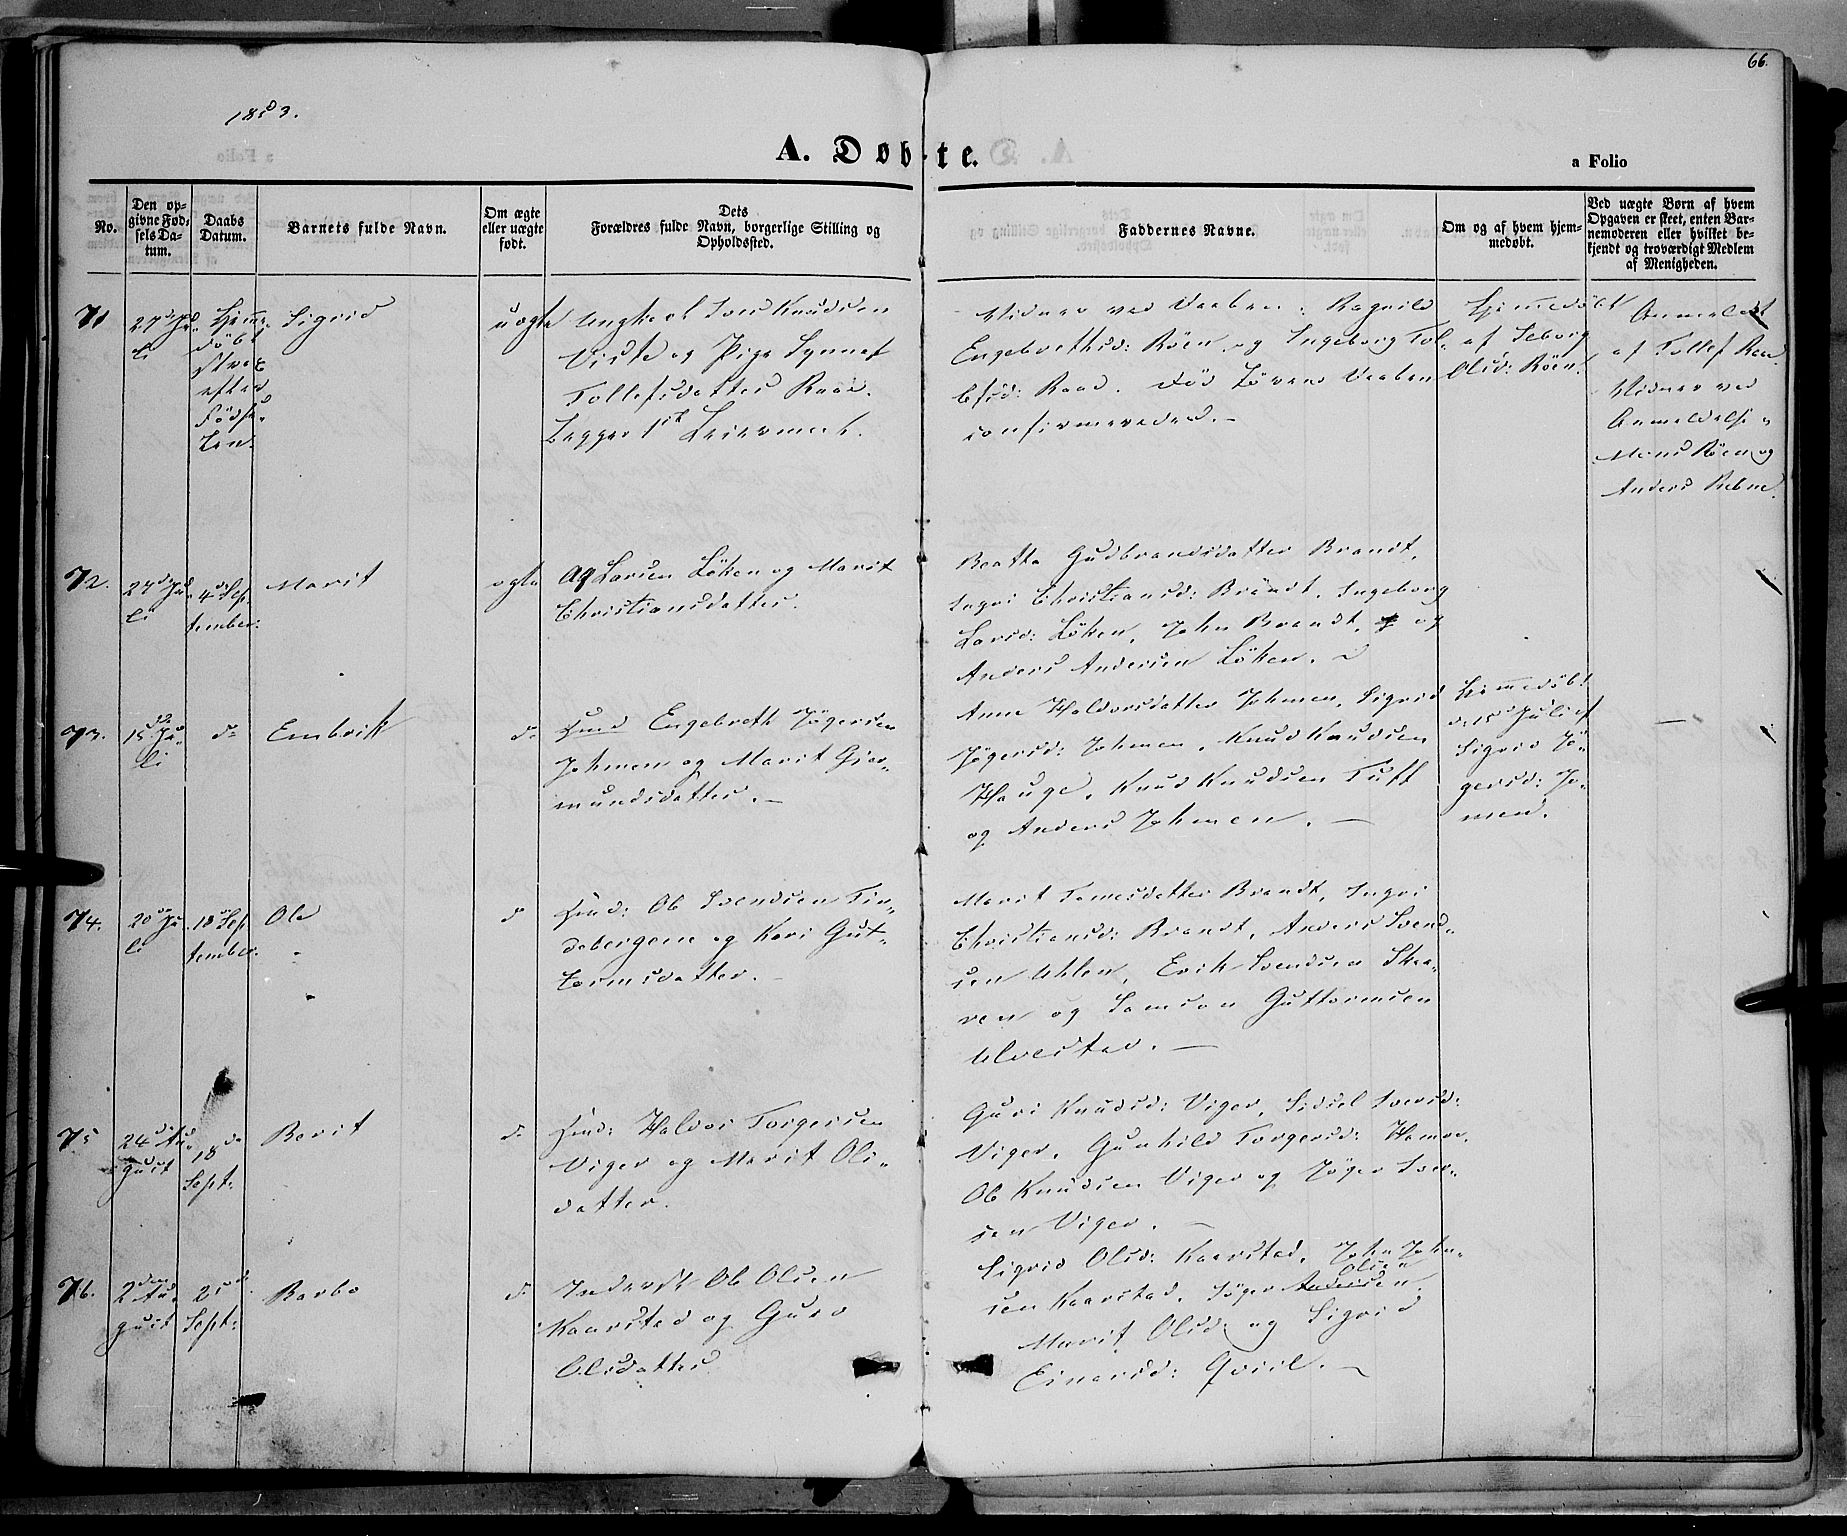 66.
1853.
A. Døbte.
a Folio
No.
Den op-
givne Fød-
sels Da-
tum.
Daabs
Datum.
Barnets fulde Navn.
Om ægte
eller uægte
født.
Dets
Forældres fulde Navn, borgerlige Stilling og
Opholdssted.
Faddernes Navne.
Om og af hvem hjem-
medøbt.
Ved uægte Børn af hvem
Opgaven er skeet, enten Bar-
nemoderen eller hvilket be-
kjendt og troværdigt Medlem
af Menigheden.
71
27de Ju-
li
Hjemme-
døbt
strax
efter
Fødse-
len.
Sigrid
uægte
Ungkarl Iver Knudsen
Viste og Pige Synnef
Tollefsdatter Raae.
Begges 1ste Leiermaal.
Vidner ved Daaben: Ragnild
Engebrethsd: Röen og Ingeborg Tol-
lefsd: Raae. Död förend Daaben
confirmeredes.
Hjemmedöbt
af Seborg
Olsd: Röen.
Anmeldt
af Tollef Raae
Vidner ved
Anmeldelse
Mons Röen og
Anders Rebne.
72.
27de Ju-
li
4de Sep-
tember.
Marit
ægte
Larsen Löken og Marit
Christiansdatter.
Beatha Gudbrandsdatter Brandt,
Ingri Christiansd: Brandt, Ingeborg
Larsd: Löken, John Brandt, og
Anders Andersen Löken.
73.
15de Ju-
li
do
Embrik
do
Hmd Engebreth Jögersen
Johmen og Marit Gier-
mundsdatter.
Anne Haldorsdatter Johmen, Sigrid
Jögersd: Johmen, Knud Knudsen
Hauge, Knud Knudsen Tuff
og Anders Johmen.
Hjemmedöbt
d: 15de Juli af
Sigrid Jö-
gersd: Jo-
men.
74.
20de Ju-
li
18de Sep-
tember.
Ole
do
Hmd: Ole Svendsen Tin-
debergene og Kari Gut-
tormsdatter.
Marit Tomesdatter Brandt, Ingri
Christiansd: Brandt, Anders Svend-
sen Uhlen, Erik Svendsen Skra-
ven og Samson Guttormsen
Ulvestad.
75
24de Au-
gust
18de
Sept:
Berit
do
Hmd: Haldor Torgersen
Viger og Marit Ols-
datter.
Guri Knudsd: Viger, Sidsel Iversd:
Viger, Gunhild Torgersd: Hamre,
Ole Knudsen Viger og Jöger Iver-
sen Viger.
76.
2den Au-
gust
25de
Sept:
Barbo
do
Inderst Ole Olsen
Kaarstad og Guro
Olsdatter
Sigrid Olsd: Kaarstad, John John-
sen Kaarstad, Jöger Olsen
Marit Olsd: og Sigrid
Einersd: Qviil.